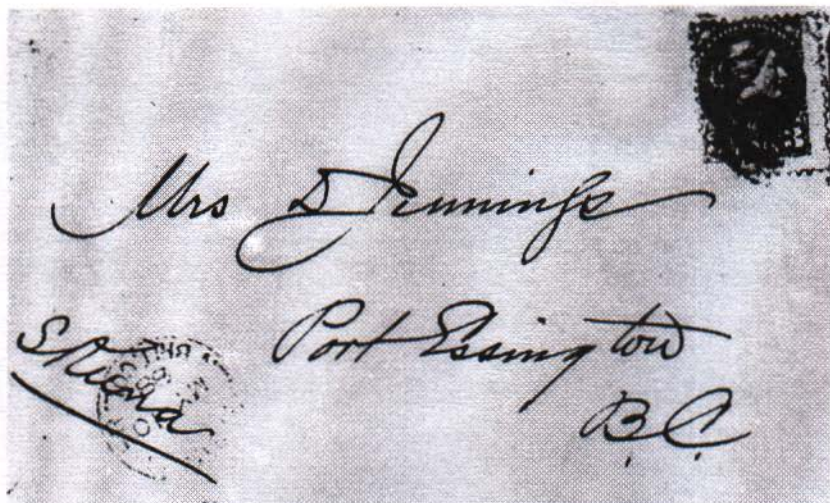 Mrs D Jennings
Port Essington
B.C.
Skeena